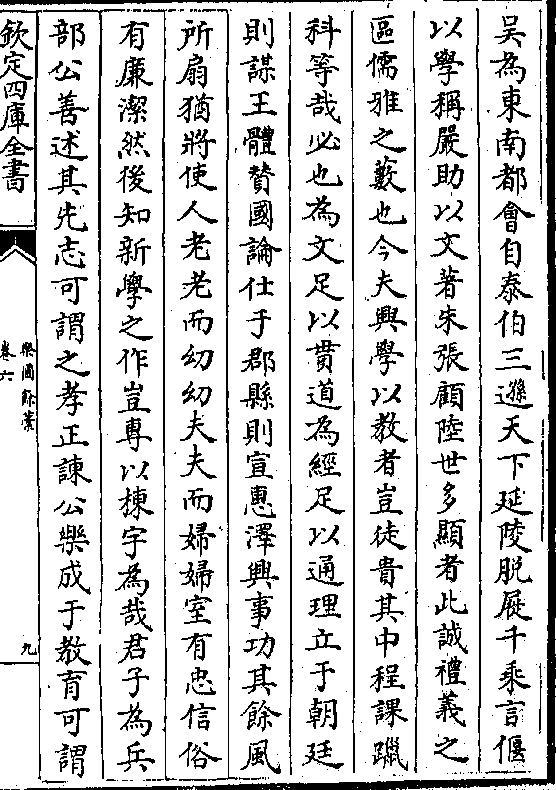 吳為東南都會自泰伯三遜天下延陵脱屣千乘言偃
以學稱嚴助以文著朱張顧陸世多顯者此誠禮義之
區儒雅之藪也今夫興學以教者豈徒貴其中程課躐
科等哉必也為文足以貫道為經足以通理立于朝廷
則謀王體贊國論仕于郡縣則宣惠澤興事功其餘風
所扇猶將使人老老而幼幼夫夫而婦婦室有忠信俗
有廉潔然後知新學之作豈專以棟宇為哉君子為兵
部公善述其先志可謂之孝正諫公樂成于教育可謂
欽定四庫全書
樂圃餘藳
卷六
九